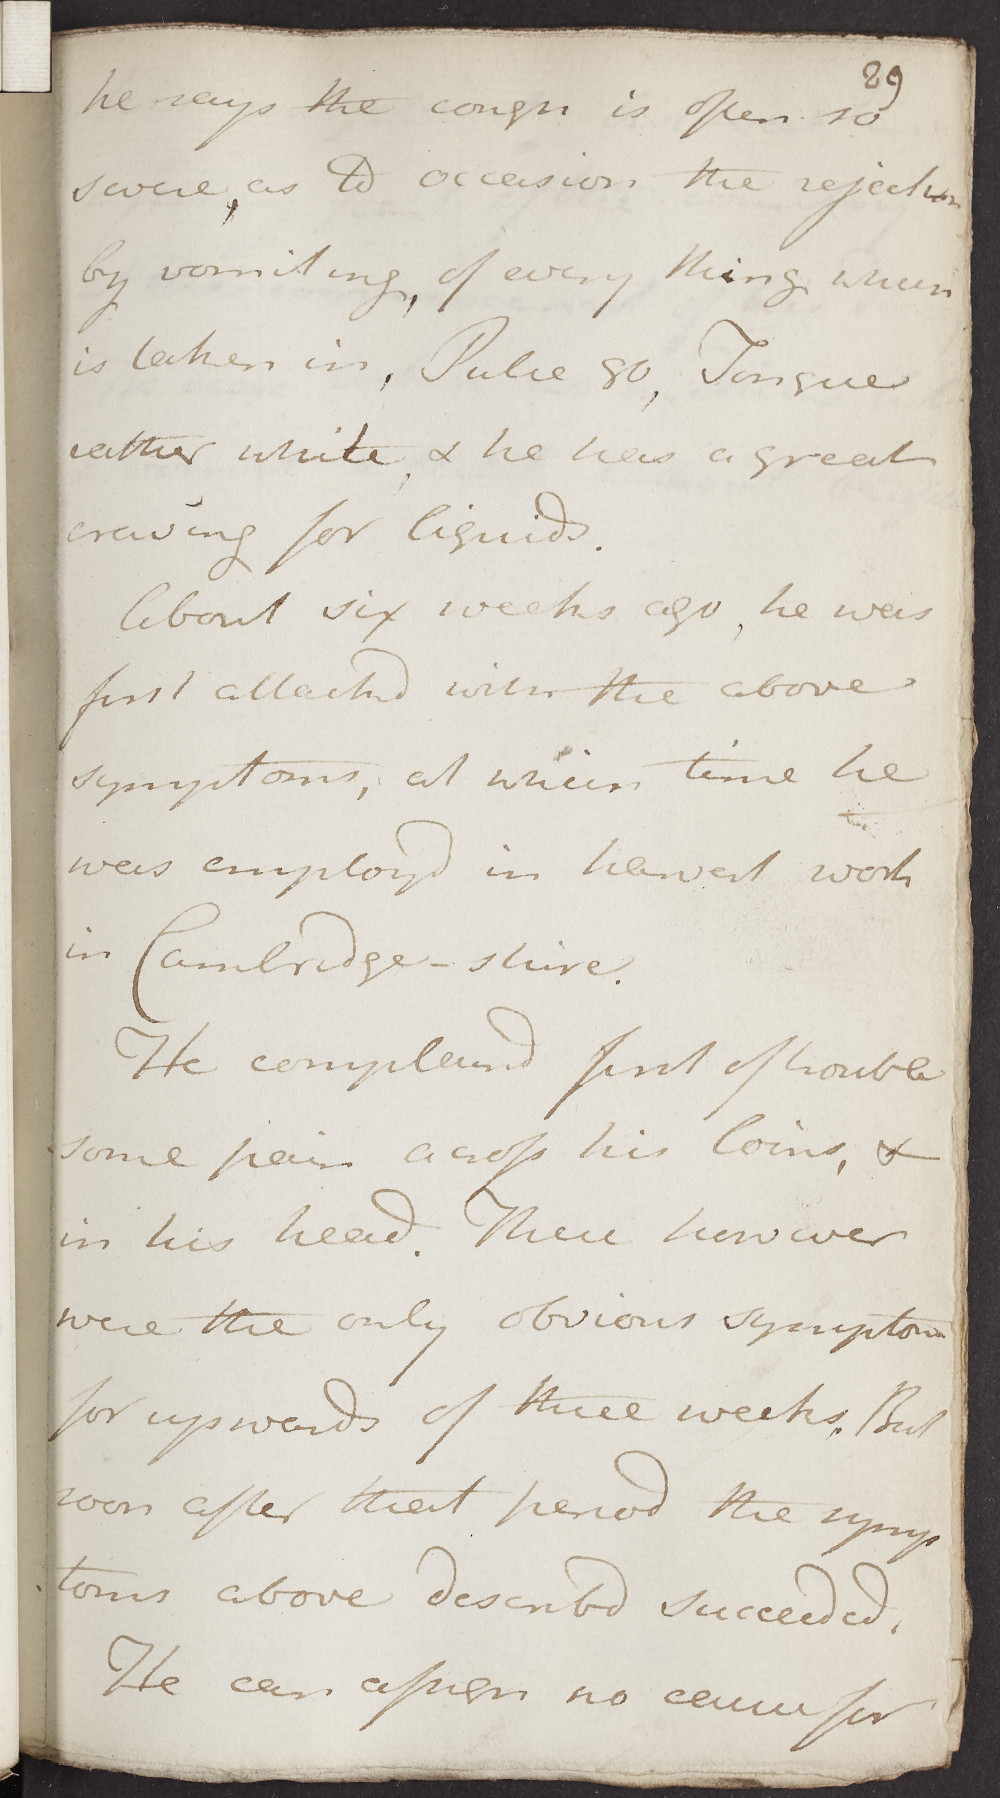 29
he says the cough is often so
severe, as to occasion the rejection
by vomiting, of every thing which
is taken in, Pulse 90, Tongue
rather white, & he has a great
craving for liquids.
About six weeks ago, he was
first attackd with the above
symptoms, at which time he
was employd in harvest work
in Cambridge-shire.
He complaind first of trouble
some pain across his loins, &
in his head. These however
were the only obvious symptoms
for upwards of three weeks. But
soon after that period the symp
toms above describd succeeded.
He can assign no cause for